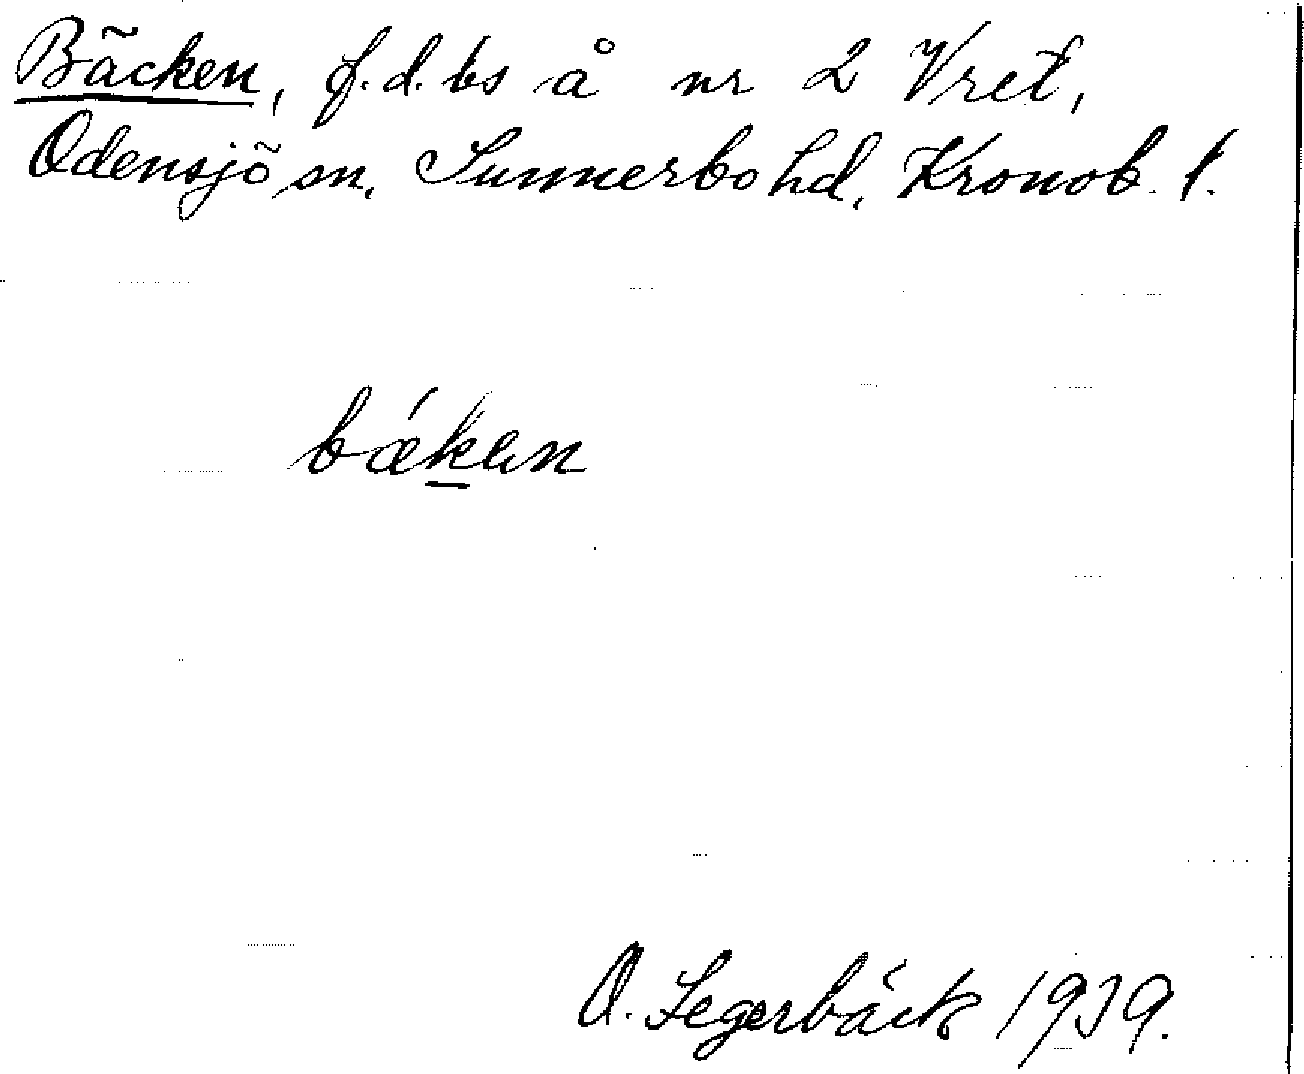 Bäcken, f.d. bs å nr 2 Vret,
Odensjö sn, Sunnerbo hd, Kronob. l.
bǽkɘn
O. Segerbäck 1939.